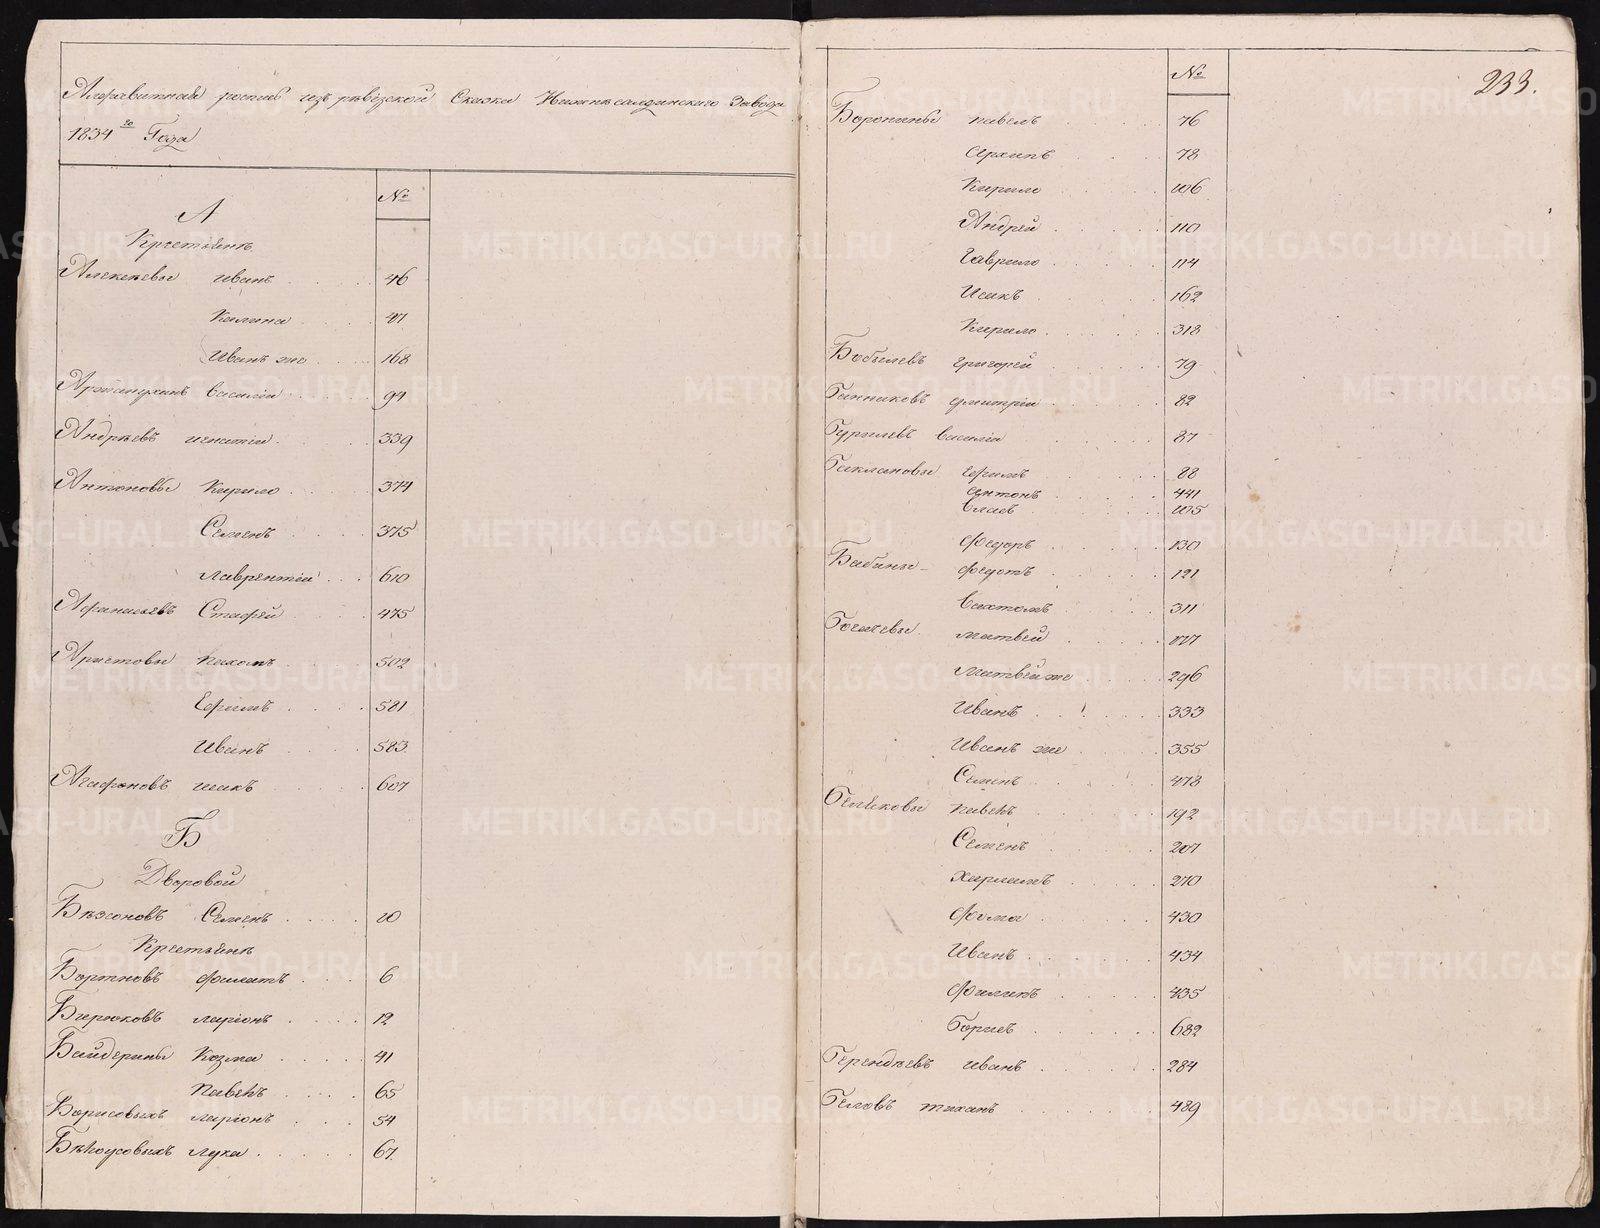 Алфавитная роспись изъ ревѣзской Сказки Нижнѣсалдинскаго Завода
1834го Года
№
А
Крестьянъ
Алексѣевы Иванъ 46
Калина 47
Иванъ же 168
Василій 94
Андрѣевъ Игнатій 339
Антоновы Кирило 374
Семенъ 375
Лаврентій 610
Афанасьевъ Стафѣй 475
Аристовы Пахомъ 502
Ефимъ 581
Иванъ 583
Агафоновъ Исакъ 607
Б
Дворовой
Бѣзсоновъ Семенъ 10
Крестьянъ
Бортновъ Филатъ 6
Бирюковъ Ларіонъ 12
Байдерины Козма 41
Павелъ 65
Борисовыхъ Ларіонъ 54
Бѣлоусовыхъ Лука 67
233.
№
Воронины Павелъ 76
Архипъ 78
Кирило 106
Андрей 110
Гаврило 114
Исакъ 162
Кирило 318
Бобылевъ Григорей 79
Банниковъ Дмитрій 82
Бурылевъ Василій 87
Баклановы Ефимъ 88
Антонъ 441
Власъ 105
Федоръ 130
Бабины Федотъ 121
311
Матвей 107
Матвей же 296
Иванъ 333
Иванъ же 355
Семенъ 478
Бѣляковы Павелъ 192
Семенъ 207
Харламъ 270
Фома 430
Иванъ 434
Филипъ 435
Борисъ 682
Берендѣевъ Иванъ 284
Беловъ Тиханъ 489
METRIKI.GASO-URAL.RU